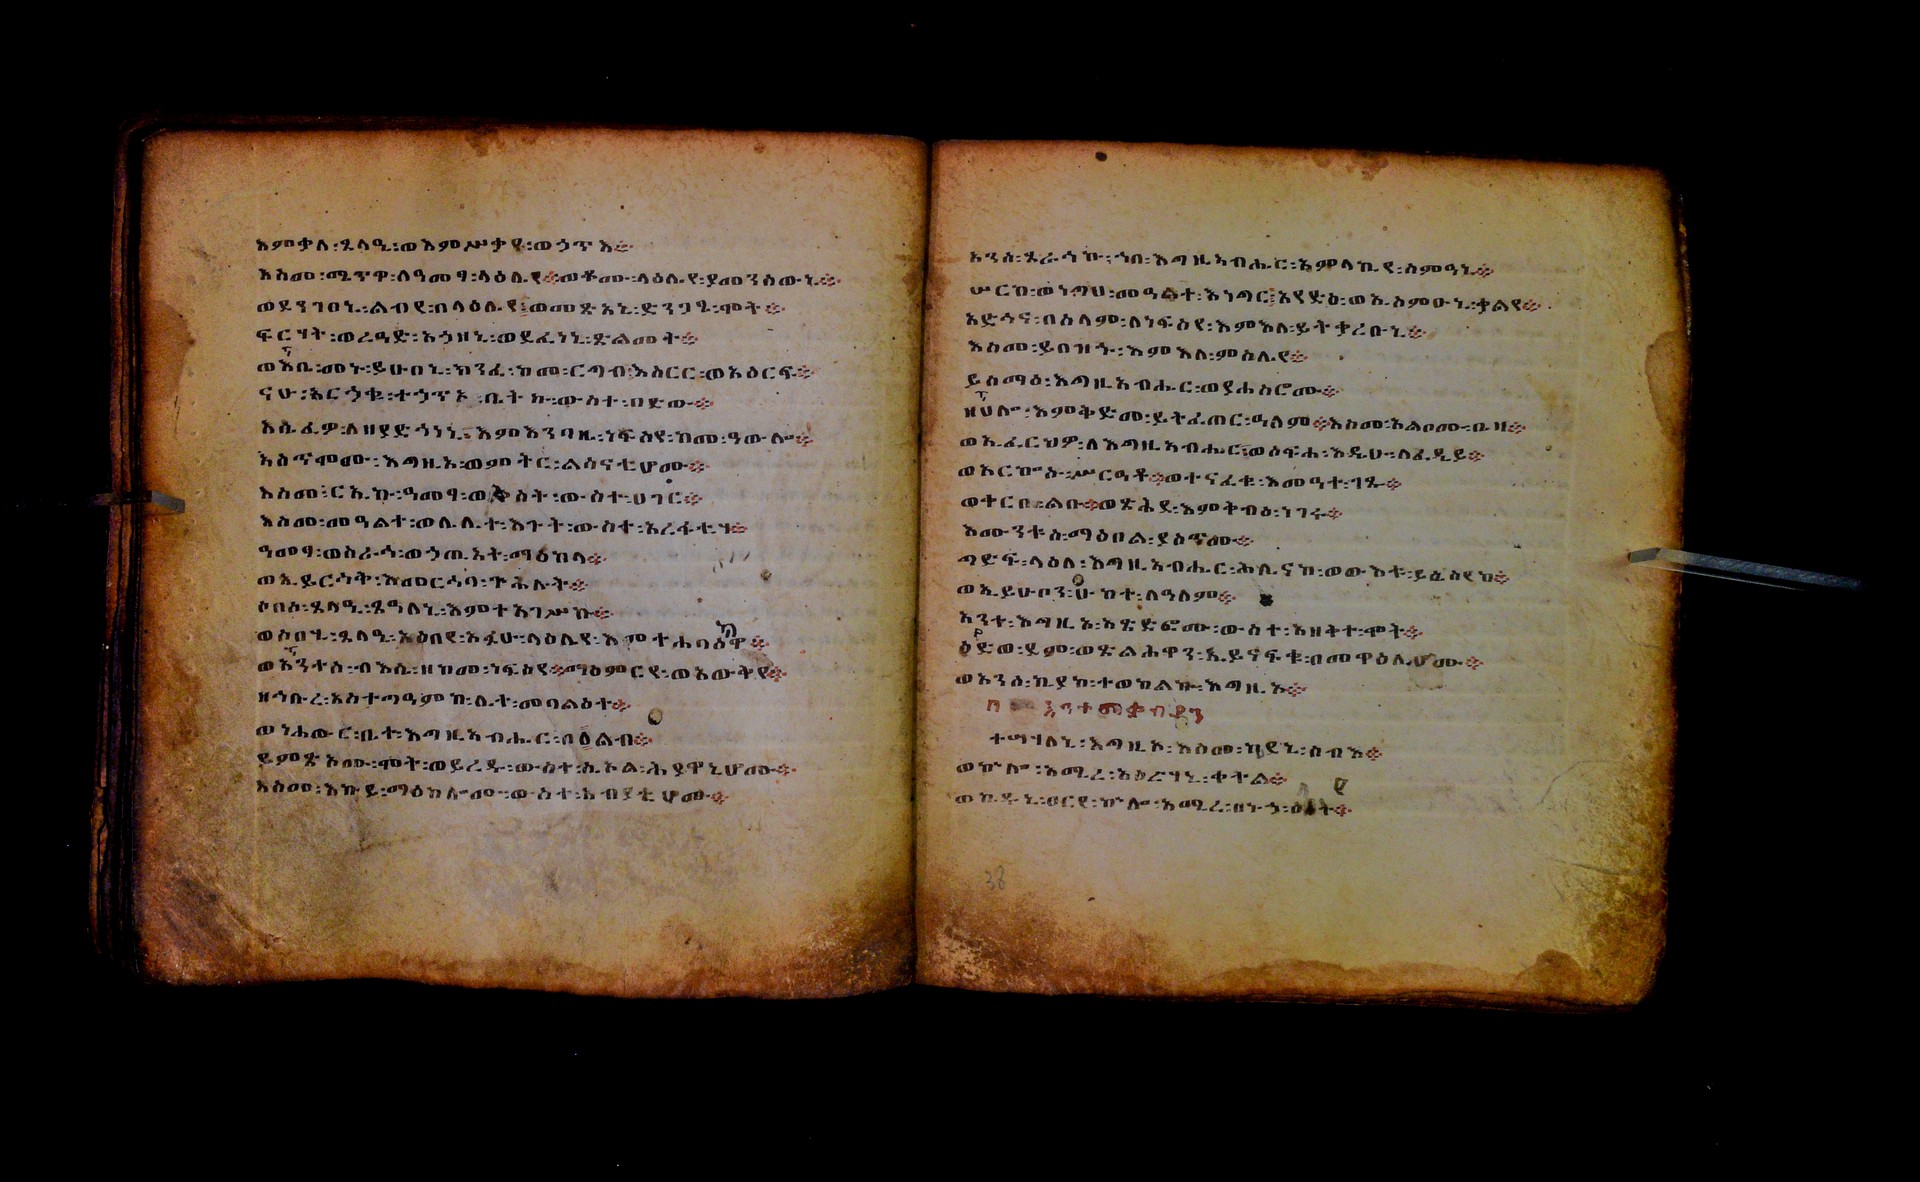 እምቃለ፡ጸላዒ፡ወእምሥቃየ፡ወኃጥእ፨
እስመ፡ሜጥዋ፡ለዓመፃ፡ላዕሌየ፨ወቆሙ፡ላዕሌየ፡ያመንስውኒ፨
ወደንገፀኒ፡ልብየ፡በላዕሌየ፨ወመጽአኒ፡ድንጋፄ፡ሞት፨
ፍርሃት፡ወረዓድ፡አኃዘኒ፡ወደፈነኒ፡ጽልመት፨
ወእቤ፡መኑ፡ይሁበኒ፡ክንፈ፡ከመ፡ርግብ፡እስርር፡ወአዕርፍ፨
ናሁ፡አርኃቁ፡ተኃጥኦ፡ቤትኩ፡ውስተ፡በድው፨
እሴፈዎ፡ለዘያድኅነኒ፨እምእንባዜ፡ነፍስየ፡ከመ፡ዓውሎ፨
አስጥሞሙ፡እግዚአ፡ወምትር፡ልሳናቲሆሙ፨
እስመ፡ርኢኩ፡ዓመፃ፡ወቅስት፡ውስተ፡ሀገር፨
እስመ፡መዓልተ፡ወሌሊተ፡እጉት፡ውስተ፡አረፋቲሃ፨
ዓመፃ፡ወስራኅ፡ወኃጢአት፡ማዕከላ፨
ወኢይርኅቅ፡እመርሓባ፡ጕሕሉት፨
ሶበሰ፡ጸላዒ፡ጸዓለኒ፡እምተአገሥኩ፨
ወሶበሂ፡ጸላዒ፡አዕበየ፡አፉሁ፡ላዕሌየ፡እምተሐባእኩ፨
ወአንተሰ፡ብእሲ፡ዘከመ፡ነፍስየ፨ማዕምርየ፡ወአውቅየ፨
ዘኅቡረ፡አስተጣዓምከ፡ሊተ፡መባልዕተ፨
ወነሐውር፡ቤተ፡እግዚአብሔር፡በዕልብ፨
ይምጽኦሙ፡ሞት፡ወይረዱ፡ውስተ፡ሲኦል፡ሕያዋኒሆሙ፨
እስመ፡እኩይ፡ማዕከሎሙ፡ውስተ፡አብያቲሆሙ፨
አንሰ፡ጸራኅኩ፡ኀበ፡እግዚአብሔር፡አምላኪየ፡ሰምዓኒ፨
ሠርከ፡ወነግህ፡መዓልተ፡እነግር፡አየድዕ፡ወኢሰምዑኒ፡ቃልየ፨
አድኅና፡በሰላም፡ለነፍስየ፡እምእለ፡ይትቃረቡኒ፨
እስመ፡ይበዝኁ፡እምእለ፡ምስሌየ፨
ይሰማዕ፡እግዚአብሔር፡ወያሐስሮሙ፨
ዘሀሎ፡እምቅድመ፡ይትፈጠር፡ዓለም፨እስመ፡አልቦሙ፡ቤዛ፨
ወኢፈርህዎ፡ለእግዚአብሔር፨ወሰፍሐ፡እዴሁ፡ለፈዲይ፨
ወአርኰሱ፡ሥርዓቶ፨ወተናፈቁ፡እመዓተ፡ገጹ፨
ወቀርበ፡ልቡ፨ወጽሕደ፡እምቅብዕ፡ነገሩ፨
እሙንቱሰ፡ማዕበል፡ያሰጥሙ፨
ግድፍ፡ላዕለ፡እግዚአብሔር፡ሕሊናከ፡ወውእቱ፡ይሴስየከ፨
ወኢይሁብ፡ሁከተ፡ለዓለም፨
አንተ፡እግዚኦ፡አጽድፎሙ፡ውስተ፡አዘቅተ፡ሞት፨
ዕድወ፡ደም፡ወጽልሕዋን፡ኢይናፍቁ፡በመዋዕሊሆሙ፨
ወአንሰ፡ኪያከ፡ተወከልኩ፡እግዚኦ፨
ተሣሃለኒ፡እግዚኦ፡እስመ፡ኬደኒ፡ሰብእ፨
ወኵሎ፡አሚረ፡አስርሃኒ፡ቀትል፨
ወኬዱኒ፡ፀርየ፡ኵሎ፡አሚረ፡